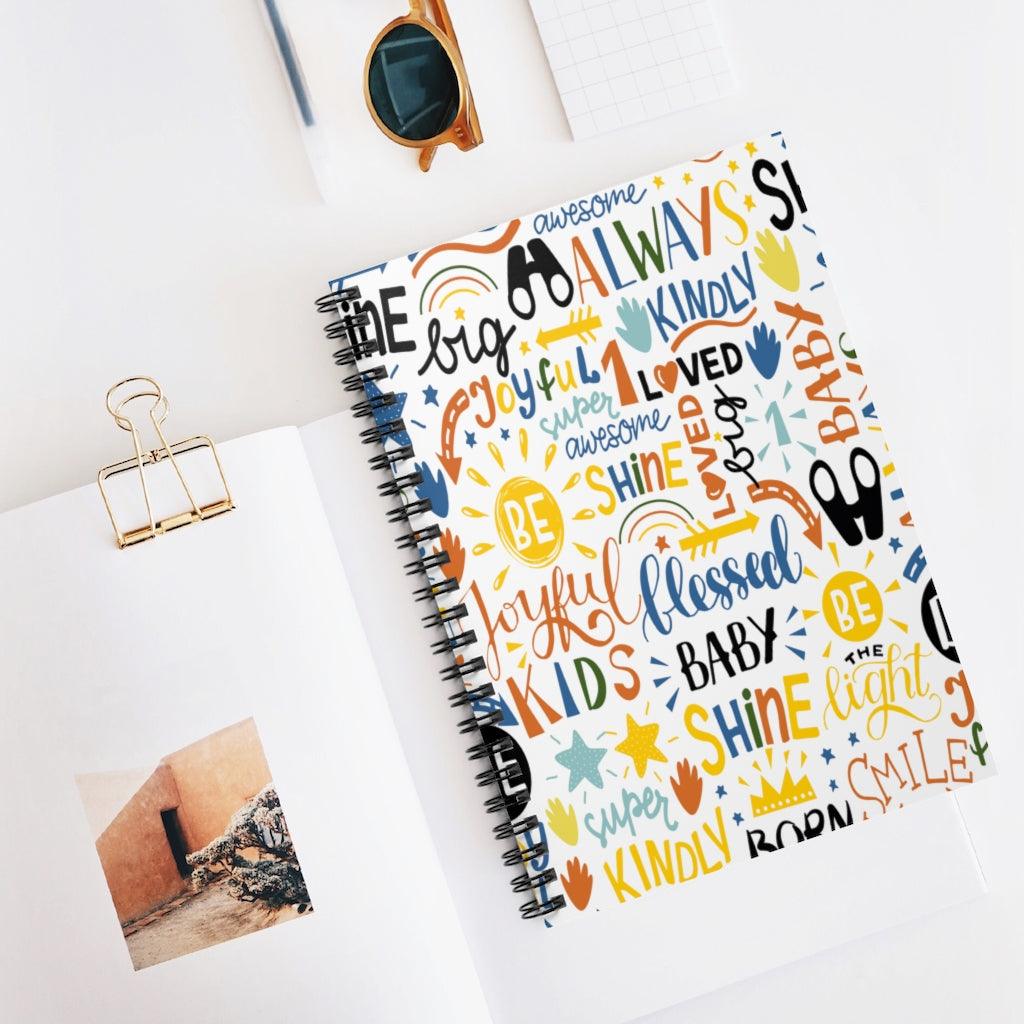 awesome
ALWAYS
SH
iNE
big
KINDLY
Joyful
1
LOVED
super
awesome
LOVED
big
1
BABY
SHiNE
BE
Joyful
blessed
BE
THE
light
BABY
KIDS
SHiNE
SMILE
super
KINDLY
BORN